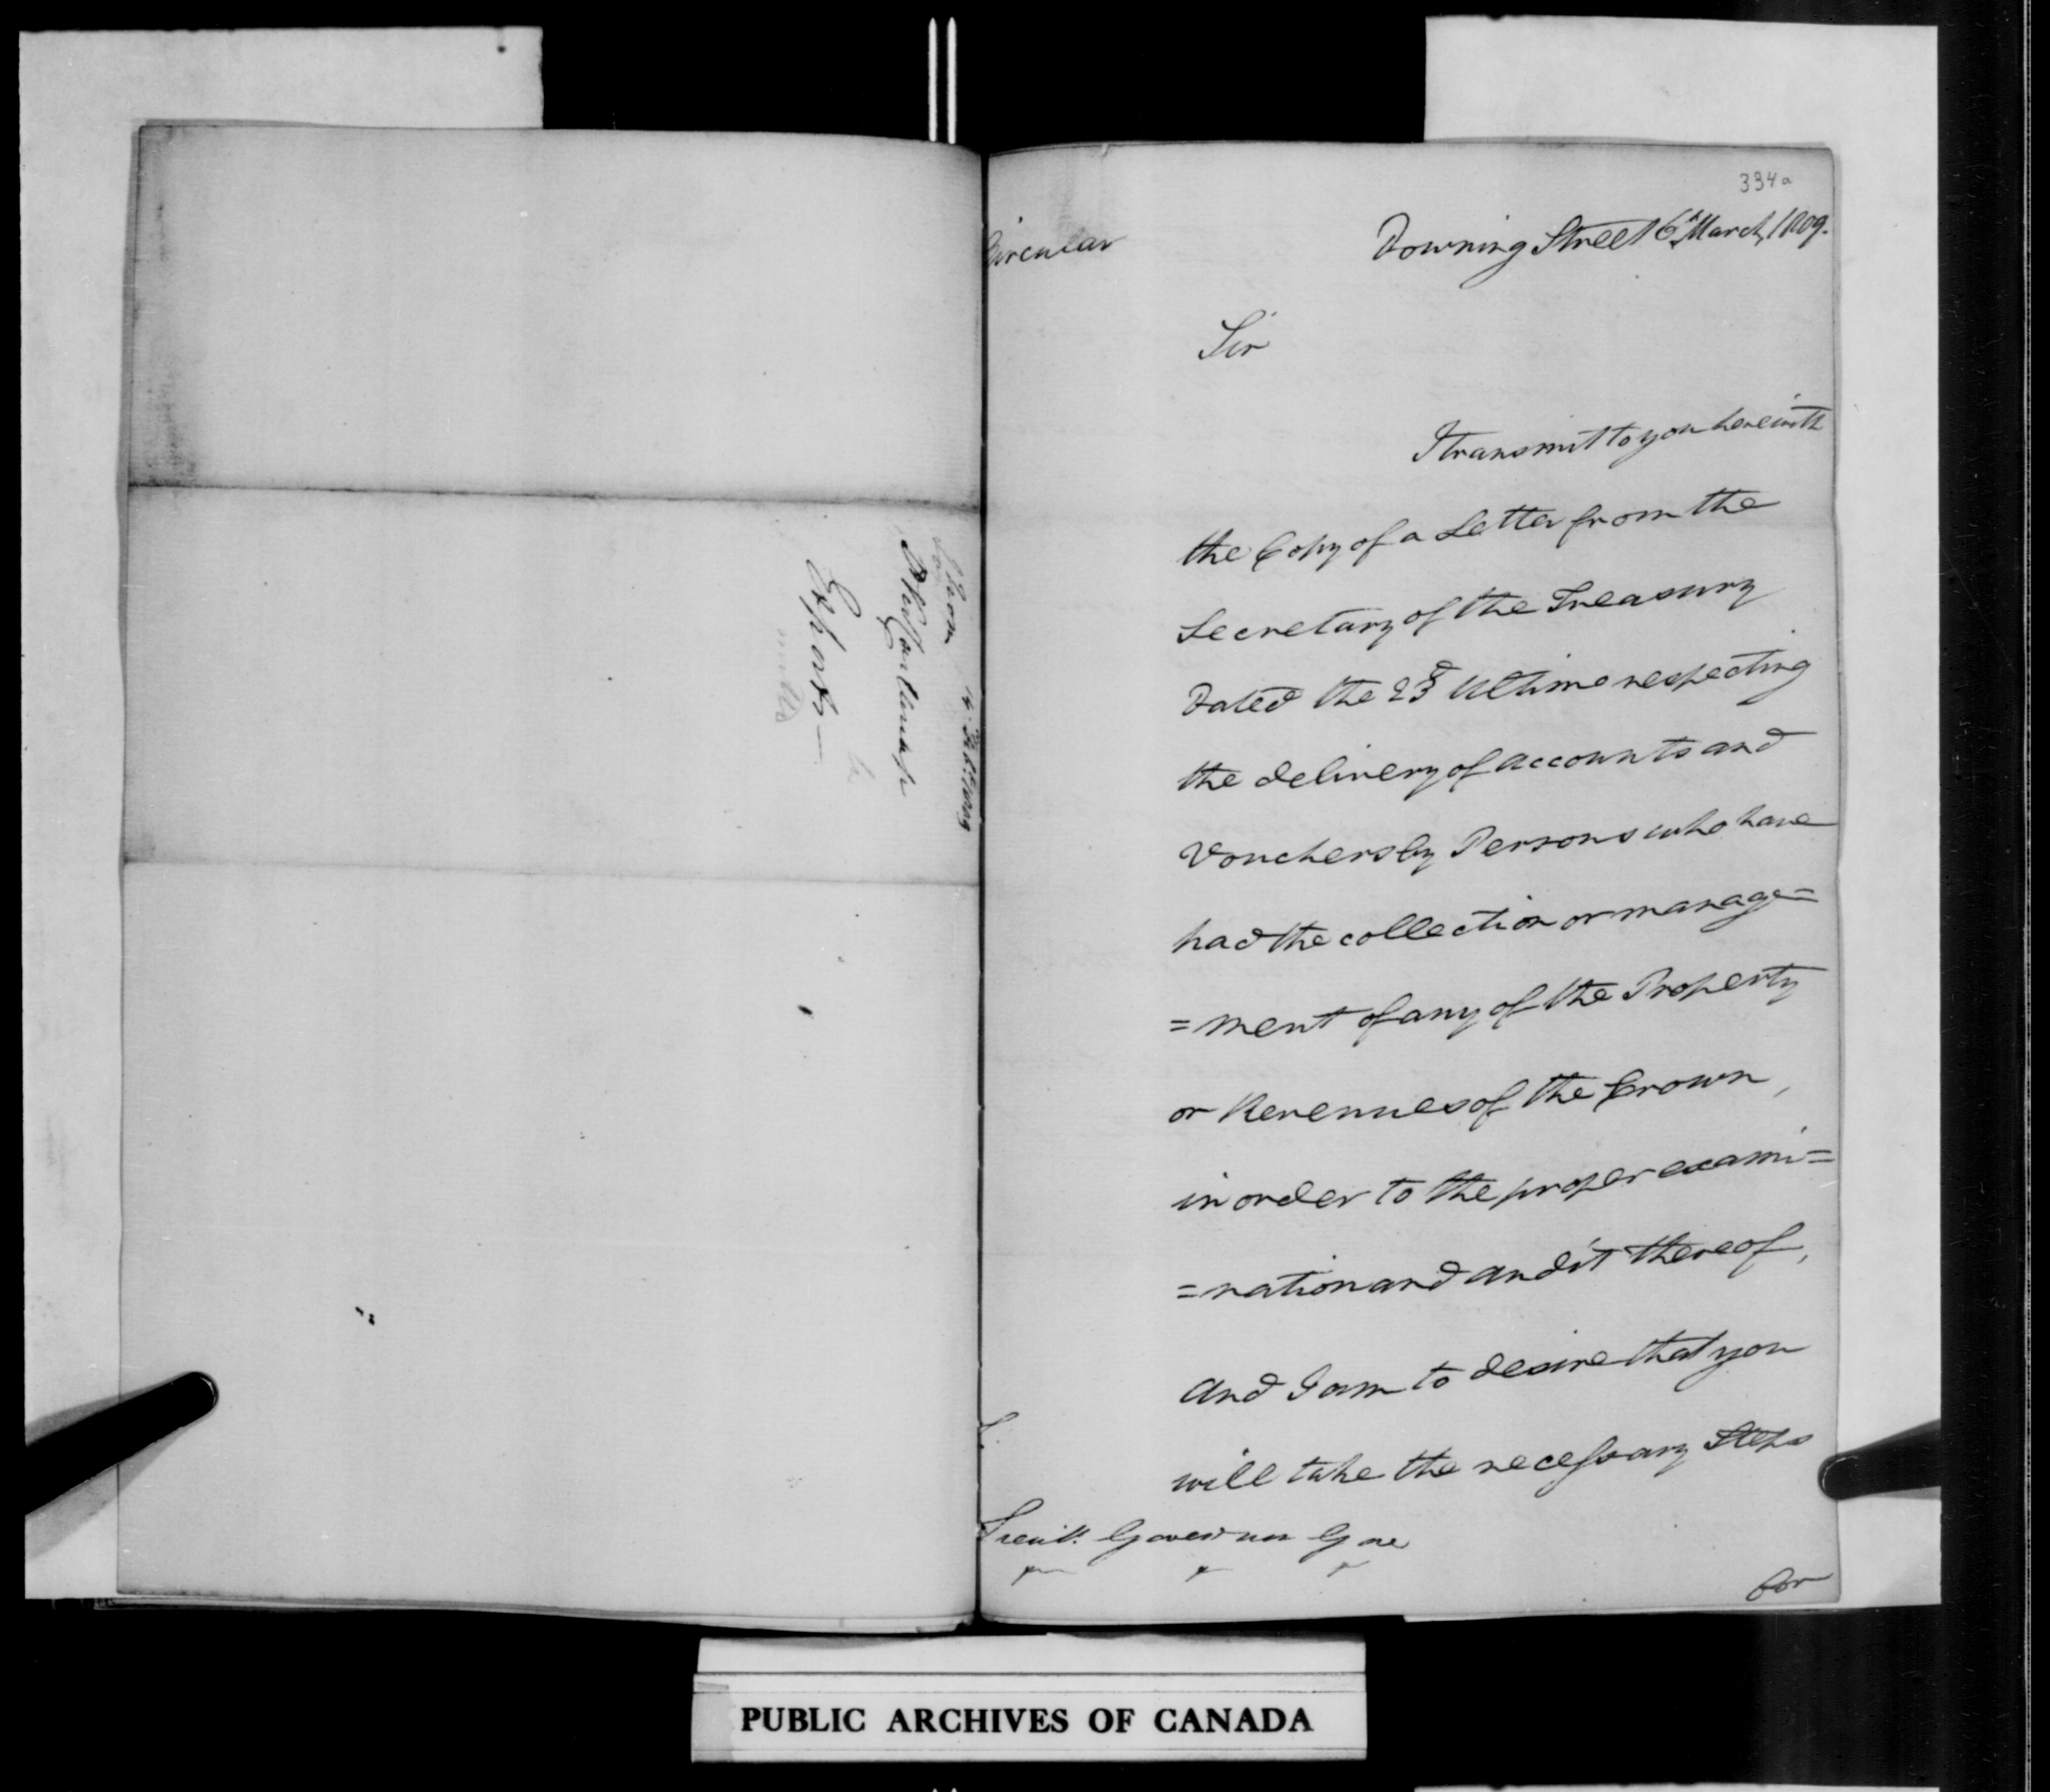 334a
Circular
Downing Street 6th March, 1809.
Sir
I transmit to you herewith
the Copy of a Letter from the
Secretary of the Treasury
Dated the 23d Ultimo respecting
the delivery of accounts and
Vouchers by Persons who have
had the collection or manage=
=ment of any of the Property
or Revenues of the Crown,
in order to the proper exami=
=nation and audit thereof,
and I am to desire that you
will take the necessary Steps
Lieut. Governor Gore
for
PUBLIC ARCHIVES OF CANADA